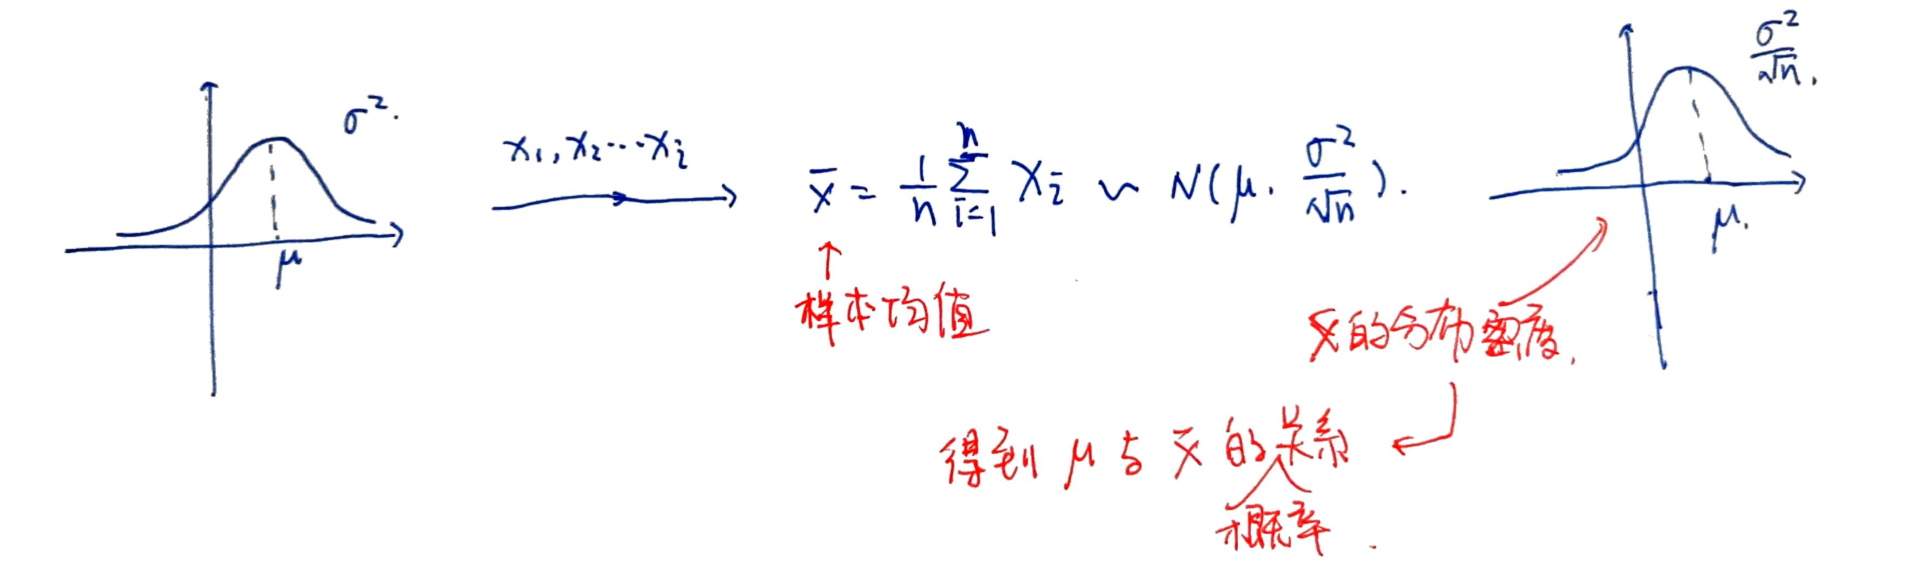 σ².
μ
x₁, x₂ ⋯ xᵢ
x̄ = 1/n ∑ᵢ₌₁ⁿ Xᵢ ~ N(μ, σ²/√n).
σ²/√n.
μ.
↑
样本均值
x̄的分布密度.
得到 μ 与 x̄ 的关系
概率.